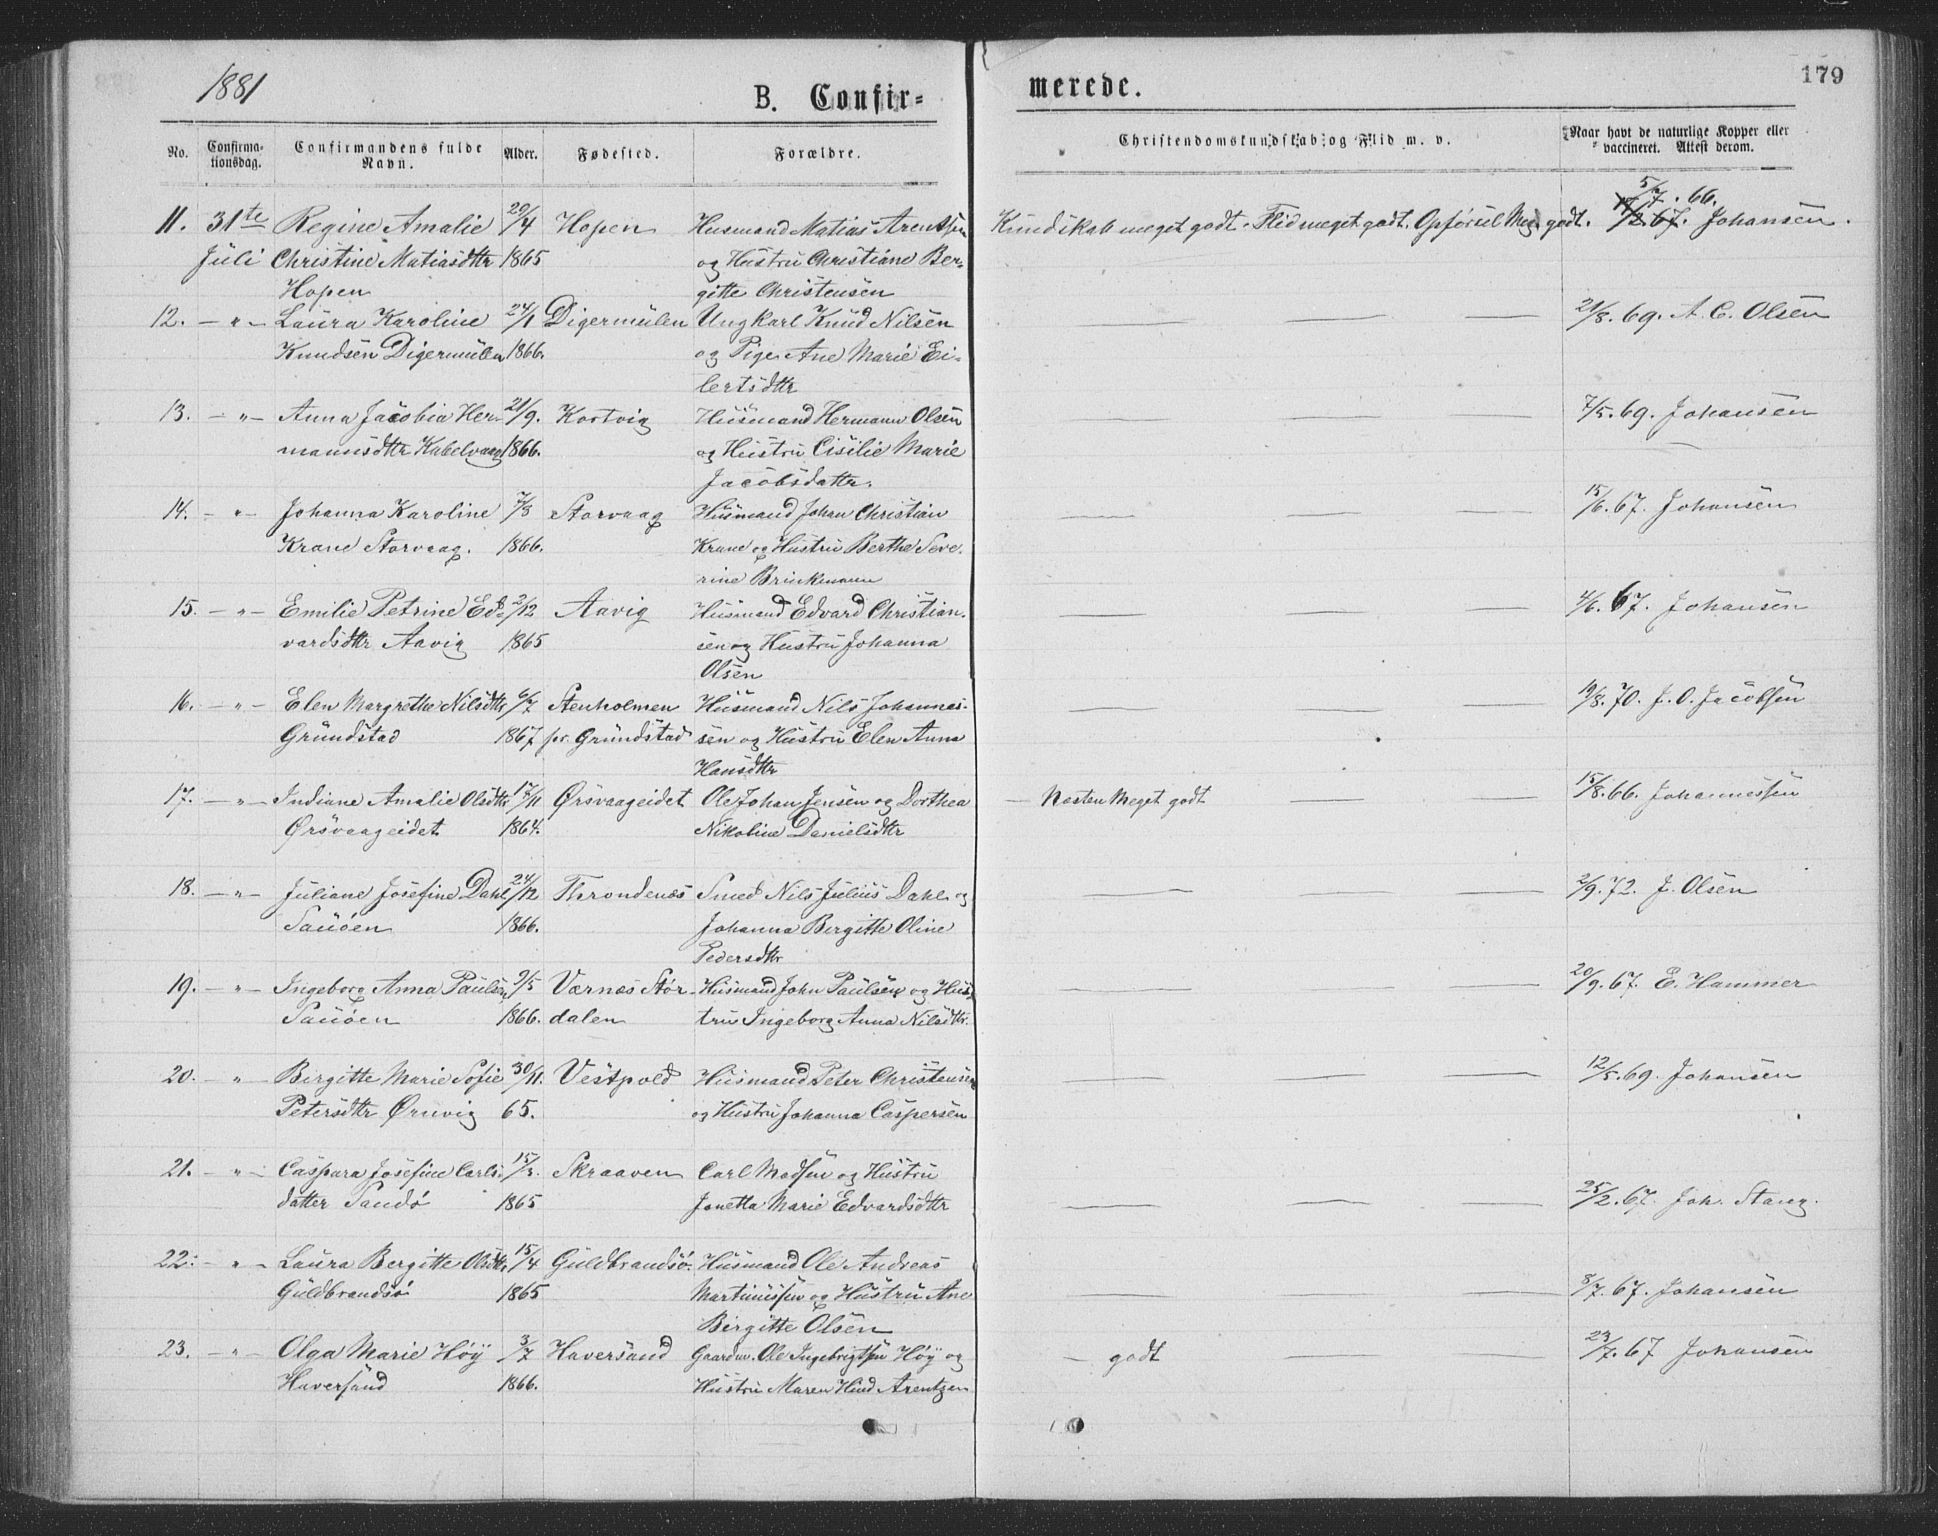 1881
B. Confir=
merede.
179
No. Confirma-tionsdag. Confirmandens fulde Navn. Alder. Fødested. Forældre. Christendomskundskab og Flid m. v. Naar havt de naturlige Kopper eller vaccineret. Attest derom.
11. 31te Regine Amalie 20/4 Hopen Husmand Matias Arentsen Kundskab meget godt. Flid meget godt. Opførsel Meg. godt. 5/7. 66. Johansen.
Juli Christine Matiasdttr 1865 og Hustru Christiane Ber-
Hopen gitte Christensen
12. - " - Laura Karoline 24/1 Digermulen Ungkarl Knud Nilsen — — — 21/8. 69. A. C. Olsen
Knudsen Digermulen 1866. og Pige Ane Marie Ei-
lertsdttr
13. - " - Anna Jacobia Her- 21/9. Kortvig Husmand Hermann Olsen — — — 7/5. 69. Johansen
mannsdttr Kabelvaag 1866. og Hustru Cisilie Marie
Jacobsdattr.
14. - " - Johanna Karoline 7/3 Storvaag Husmand Johan Christian — — — 15/6. 67. Johansen
Krane Storvaag. 1866. Krane og Hustru Berthe Seve-
rine Brinkmann
15. - " - Emilie Petrine Ed- 2/12 Aavig Husmand Edvard Christian- — — — 4/6. 67. Johansen
vardsdttr Aavig 1865 sen og Hustru Johanna
Olsen
16. - " - Elen Margrethe Nilsdttr 6/7 Stenholmen Husmand Nils Johannes- — — — 19/8. 70. J. O. Jacobsen
Grundstad 1867 pr. Grundstad sen og Hustru Elen Anna
Hansdttr
17. - " - Indiane Amalie Olsdttr 17/11 Ørsvaageidet Ole Johan Jensen og Dorthea — Næsten Meget godt — — 15/8. 66. Johannessen
Ørsvaageidet 1864. Nikoline Danielsdttr
18. - " - Juliane Josefine Dahl 24/12 Throndenæs Smed Nils Julius Dahl og — — — 2/9. 72. J. Olsen
Sauøen 1866. Johanna Birgitte Oline
Pedersdttr
19. - " - Ingeborg Anna Paulsen 9/5 Værnæs Stør- Husmand John Paulsen og Hus- — — — 20/9. 67. E. Hammer
Sauøen 1866. dalen tru Ingeborg Anna Nilsdttr.
20. - " - Birgitte Marie Sofie 30/11. Vestpold Husmand Peter Christensen — — — 12/5. 69. Johansen
Petersdttr Ørsvig 65. og Hustru Johanna Caspersen
21. - " - Caspara Josefine Carls- 15/3. Skraaven Carl Madsen og Hustru
datter Sandø 1865 Jonetta Marie Edvardsdttr — — — 25/2. 67. Joh. Stang.
22. - " - Laura Bergitte Olsdttr 15/4 Guldbrandsø. Husmand Ole Andreas
Guldbrandsø 1865 Martinussen og Hustru Ane — — — 8/7. 67. Johansen
Birgitte Olsen
23. - " - Olga Marie Høÿ 3/7 Haversand Gaardm. Ole Ingebrigtsen Høÿ og — godt — — 23/7. 67 Johansen
Haversand 1866. Hustru Maren Hind Arentzen